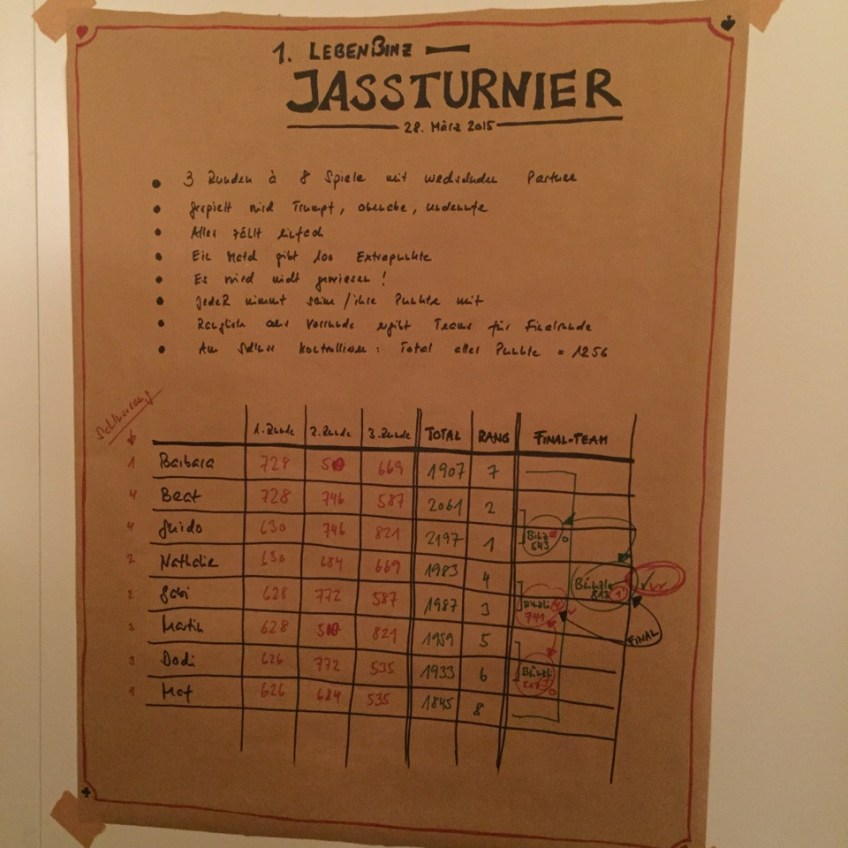 1. LEBENBINZ
JASSTURNIER
28. März 2015
3 Runden à 8 Spiele mit wechselnden Partner
gespielt wird Trumpf, obenabe, undenufe
Alles zählt einfach
Ein Match gibt 100 Extrapunkte
Es wird nicht gewiesen!
Jede2 nimmt seine/ihre Punkte mit
Rangliste der Vorrunde ergibt Teams für Finalrunde
Total aller Punkte = 1256
1. Runde 2. Runde 3. Runde TOTAL RANG FINAL-TEAM
1 Barbara 728 510 669 1907 7
4 Beat 728 746 587 2061 2
4 Guido 630 746 821 2197 1
2 Nathalie 630 684 669 1983 4
2 Gabi 628 772 587 1987 3
Martin 628 510 821 1959 5
Dodi 626 772 535 1933 6
Mat 626 684 535 1845 8
741
FINAL